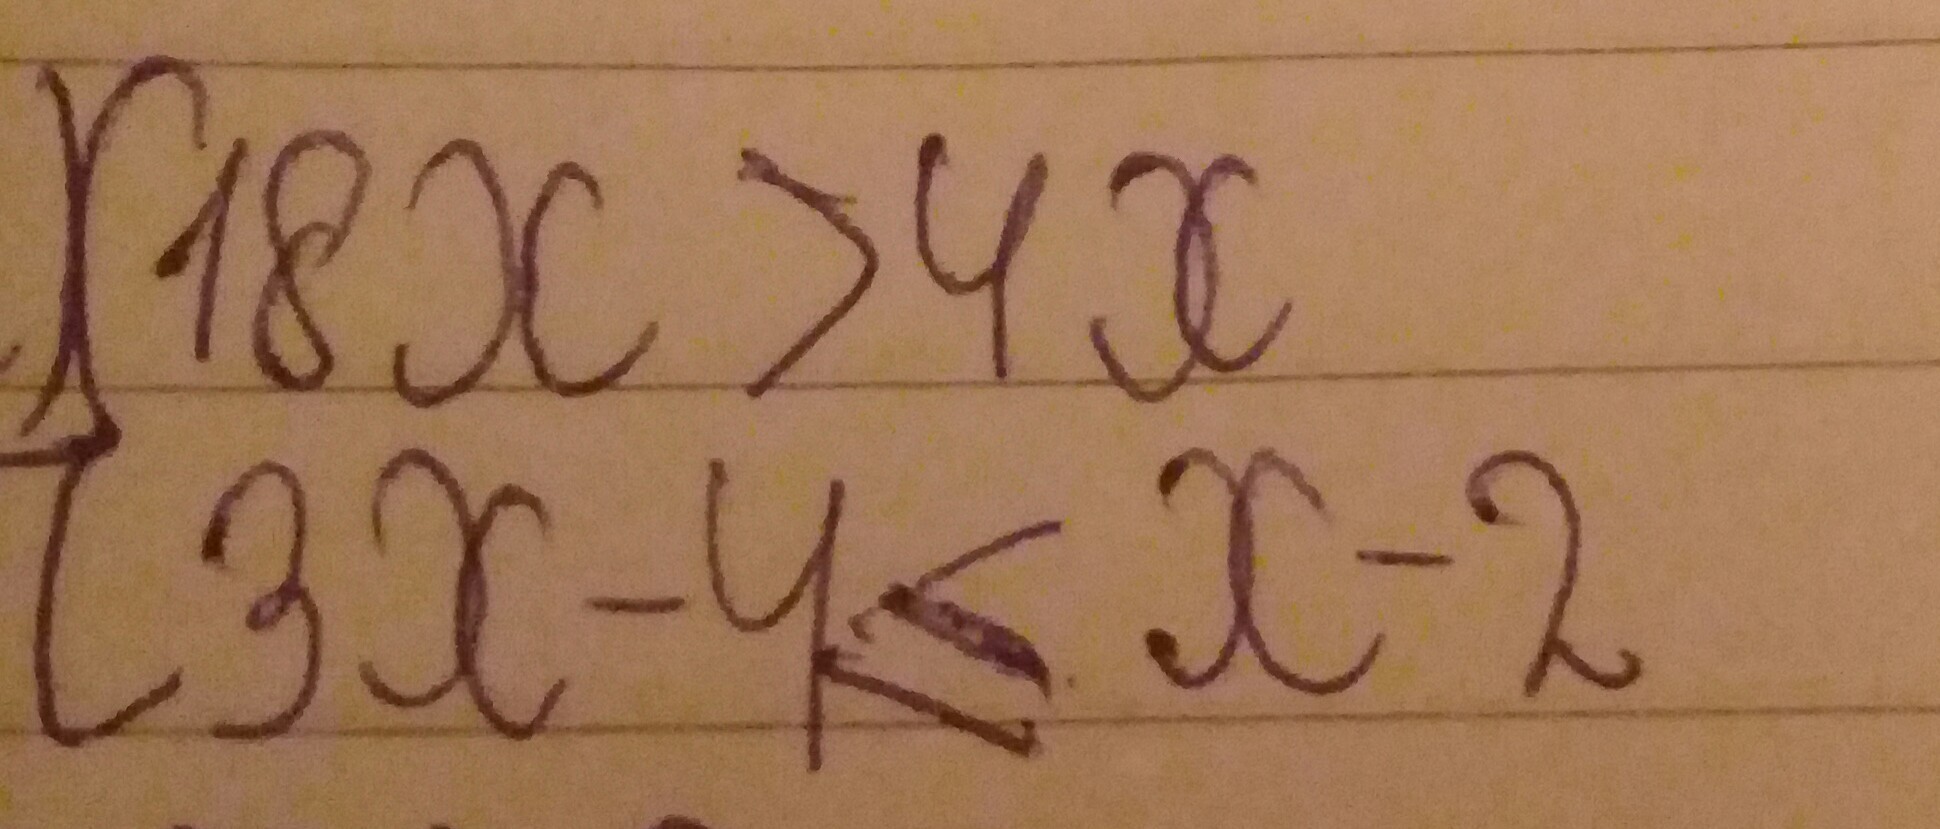 18x > 4x
3x - 4 ≤ x - 2